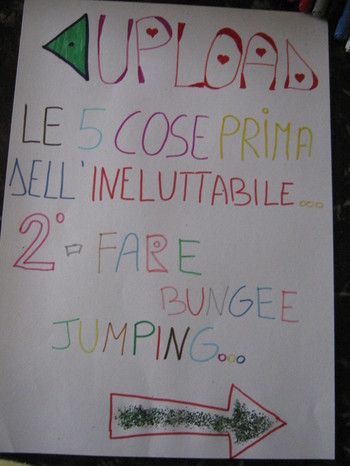 UPLOAD
LE 5 COSE PRIMA
DELL'INELUTTABILE...
2° - FARE
BUNGEE
JUMPING...